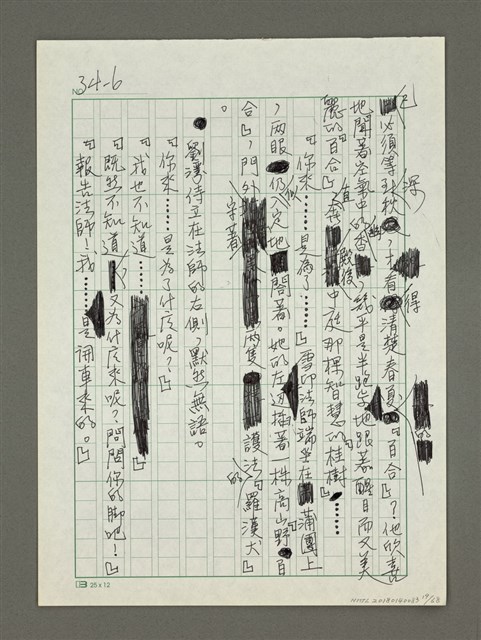 34-6
必須等到深秋，才看得清楚春夏的『百合』？他欣喜
地聞著空氣中的幽香，幾乎是半跑步地跟著醒目而又美
麗的百合』直奔殿後中庭那棵智慧的桂樹……
『你來……是為了……』雪印法師端坐在蒲團上
，兩眼仍似入定地閤著。她的左邊插著一株高山野百
合』，門外守著兩隻護法的『羅漢犬』
。
劉漢侍立在法師的右側，默然無語。
『你來……是為了什麼呢？』
『我也不知道……』
『既然不知道，又為什麼來呢？問問你的脚吧！』
『報告法師！我……是開車來的。』
25x12
NMTL20180140083 19/68